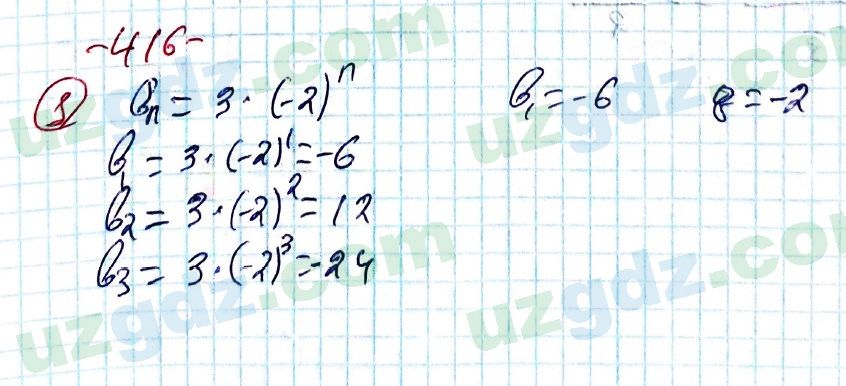 -416-
3) bn = 3·(-2)^n b1 = -6 q = -2
b1 = 3·(-2)^1 = -6
b2 = 3·(-2)^2 = 12
b3 = 3·(-2)^3 = -24
uzgdz.com
uzgdz.com
uzgdz.com
uzgdz.com